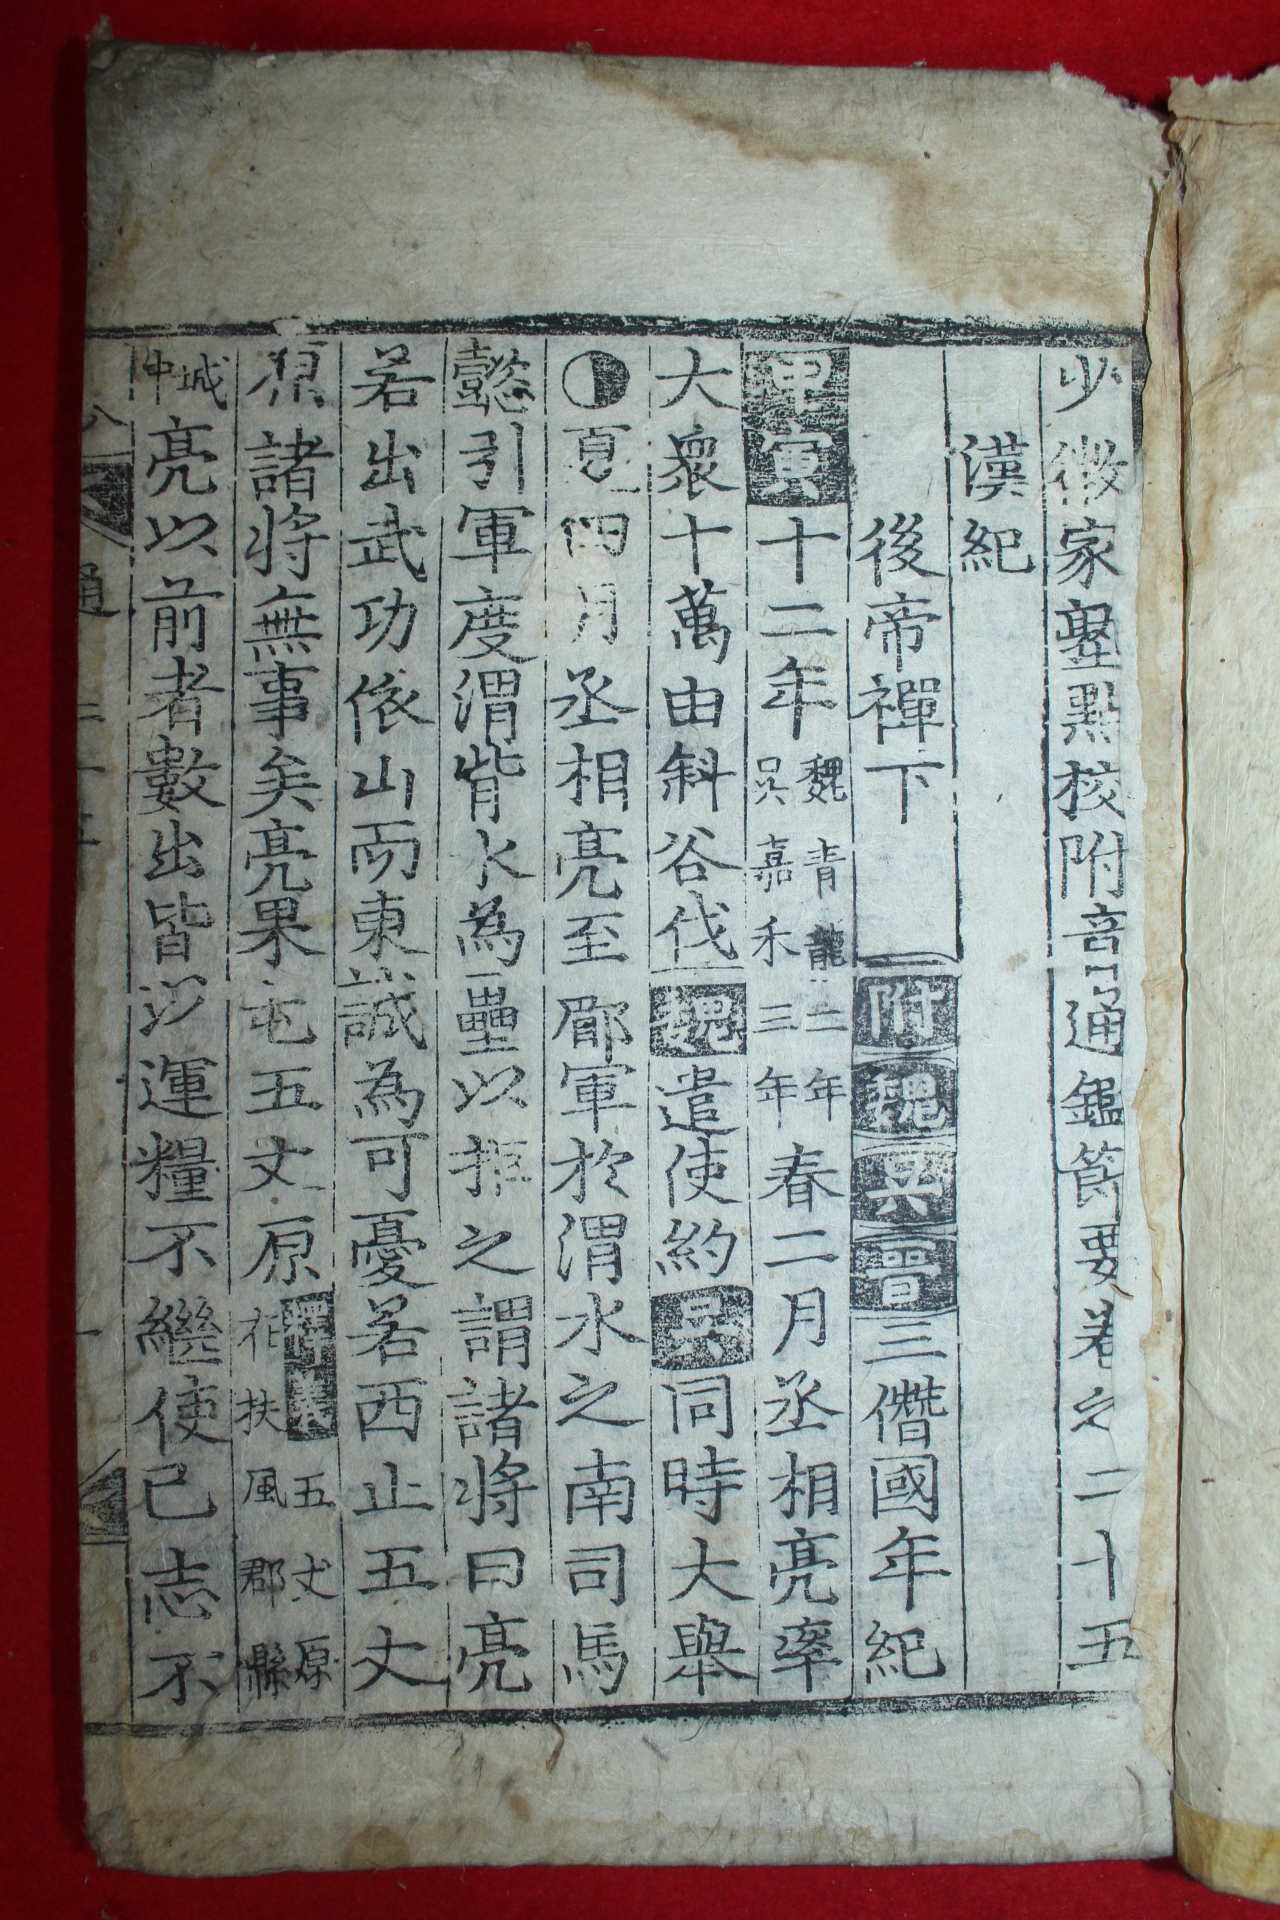 少微家塾點校附音通鑑節要卷之二十五
漢紀
後帝禪下 附魏吳晉三僭國年紀
甲寅十二年魏青龍二年吳嘉禾三年春二月丞相亮率
大衆十萬由斜谷伐魏遣使約吳同時大舉
夏四月丞相亮至郿軍於渭水之南司馬
懿引軍度渭背水為壘以拒之謂諸將曰亮
若出武功依山而東誠為可憂若西止五丈
原諸將無事矣亮果屯五丈原釋義五丈原在扶風郡縣
城中亮以前者數出皆以運糧不繼使己志不
通